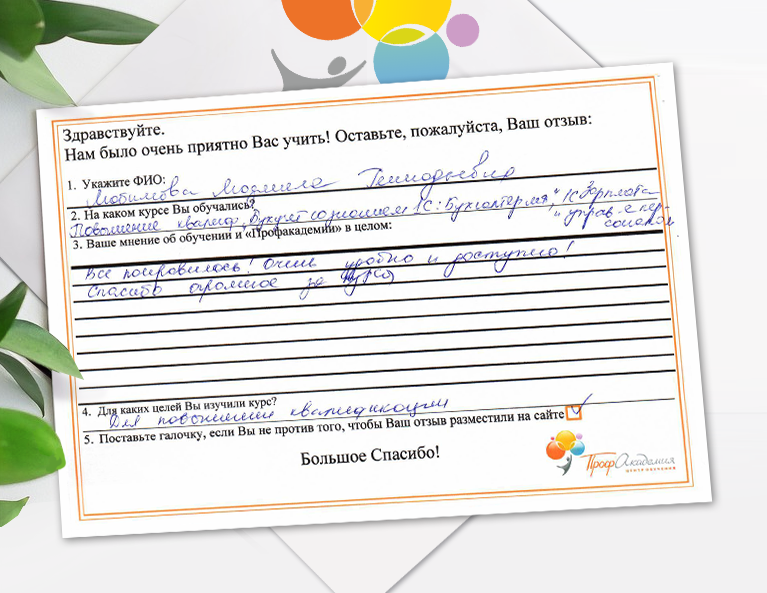 Здравствуйте.
Нам было очень приятно Вас учить! Оставьте, пожалуйста, Ваш отзыв:
1. Укажите ФИО:
Людмила Геннадьевна
2. На каком курсе Вы обучались?
Повышение квалиф. Бухучет со знанием 1С: Бухгалтерия, "1С Зарплата
" управ-е пер-
соналом
3. Ваше мнение об обучении и «Профакадемии» в целом:
Все понравилось! Очень удобно и доступно!
Спасибо огромное за курс
4. Для каких целей Вы изучили курс?
Для повышения квалификации
5. Поставьте галочку, если Вы не против того, чтобы Ваш отзыв разместили на сайте
Большое Спасибо!
ПрофАкадемия
ЦЕНТР ОБУЧЕНИЯ